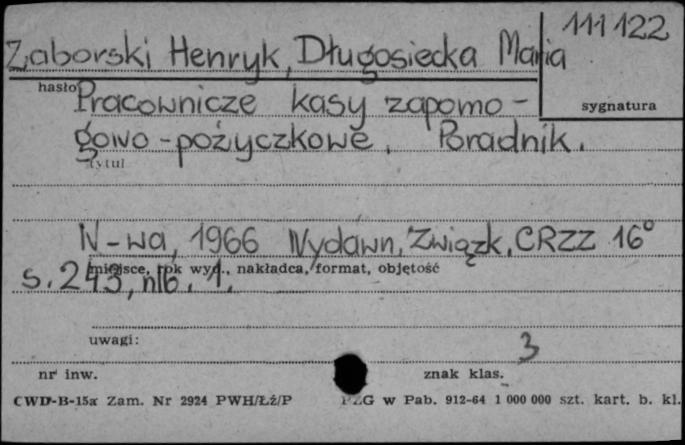 111122
Zaborski Henryk, Długosiecka Maria
hasło
Pracownicze kasy zapomo-
sygnatura
gowo-pożyczkowe. Poradnik.
tytuł
W-wa, 1966 Wydawn. Związk. CRZZ 16°
miejsce, rok wyd., nakładca, format, objętość
s. 243, nlb. 1.
uwagi:
3
nr inw.
znak klas.
CWD-B-15a Zam. Nr 2924 PWH/Łź/P
PZG w Pab. 912-64 1 000 000 szt. kart. b. kl.